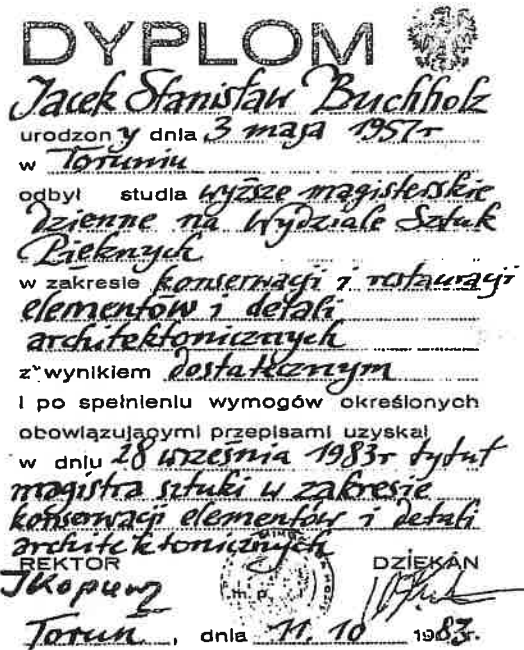 DYPLOM
Jacek Stanisław Buchholz
urodzony dnia 3 maja 1957r
w Toruniu
odbył studia wyższe magisterskie
dzienne na Wydziale Sztuk
Pięknych
w zakresie konserwacji i restauracji
elementów i detali
architektonicznych
z wynikiem dostatecznym
i po spełnieniu wymogów określonych
obowiązującymi przepisami uzyskał
w dniu 28 września 1983r tytuł
magistra sztuki w zakresie
konserwacji elementów i detali
architektonicznych
REKTOR DZIEKAN
m. p.
Toruń, dnia 11. 10 1983r.